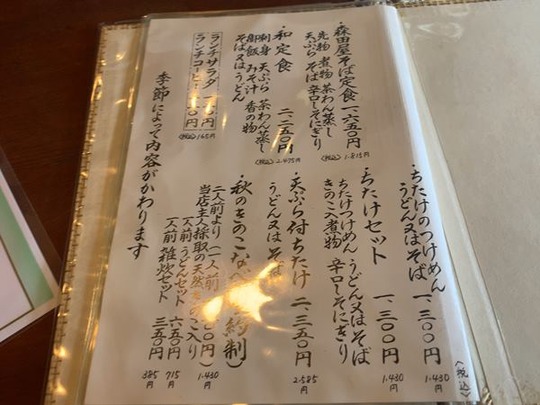 ・森田屋そば定食 一、六五〇円
先物 煮物 茶わん蒸し
天ぷら そば 辛口しそにぎり
(税込) 1.815円
・和定食 二、二五〇円
刺身 天ぷら 茶わん蒸し
御飯 みそ汁 香の物
そば又はうどん
(税込) 2.475円
ランチサラダ 一五〇円
ランチコーヒー
(税込) 165円
季節によって内容がかわります
・ちたけのつけめん
うどん又はそば 一、三〇〇円
〈税込〉
1.430円
・ちたけセット 一、三〇〇円
ちたけつけめん うどん又はそば
きのこ入煮物 辛口しそにぎり
1.430円
・天ぷら付ちたけ 二、三五〇円
うどん又はそば
2.585円
・秋のきのこなべ 約制)
二人前より (一人前 〇〇円)
1.430円
当店主人採取の天然きのこ入り
一人前 うどんセット 六五〇円
715円
一人前 雑炊セット 三五〇円
385円